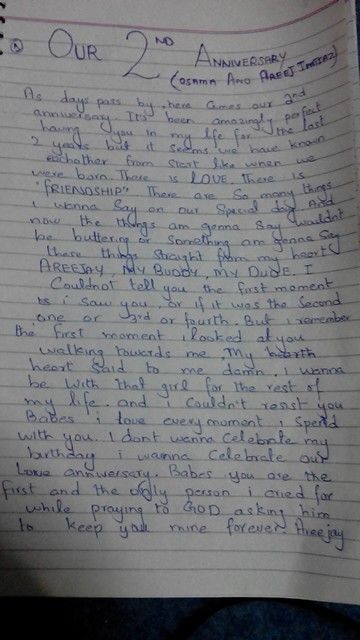 OUR 2ND ANNIVERSARY
(OSAMA AND AREEJ IMTIAZ)
As days pass by, here comes our 2nd
anniversary. It's been amazingly perfect
having you in my life for the last
2 years but it seems we have known
eachother from start like when we
were born. There is LOVE. There is
"FRIENDSHIP" There are so many things
i wanna say on our special day. And
now the things am gonna say wouldnt
be buttering or something am gonna say
these things straight from my heart
AREEJAY, MY BUDDY, MY DUDE. I
Couldnot tell you the first moment
is i saw you. or if it was the second
one or 3rd or fourth. But i remember
the first moment i looked at you
walking towards me. My
heart said to me damn. i wanna
be with that girl for the rest of
my life. and i couldn't resist you
Babes i love every moment i spend
with you. I dont wanna celebrate my
birthday i wanna celebrate our
Love anniversary. Babes you are the
first and the only person i cried for
while praying to GOD asking him
to keep you mine forever. Areejay